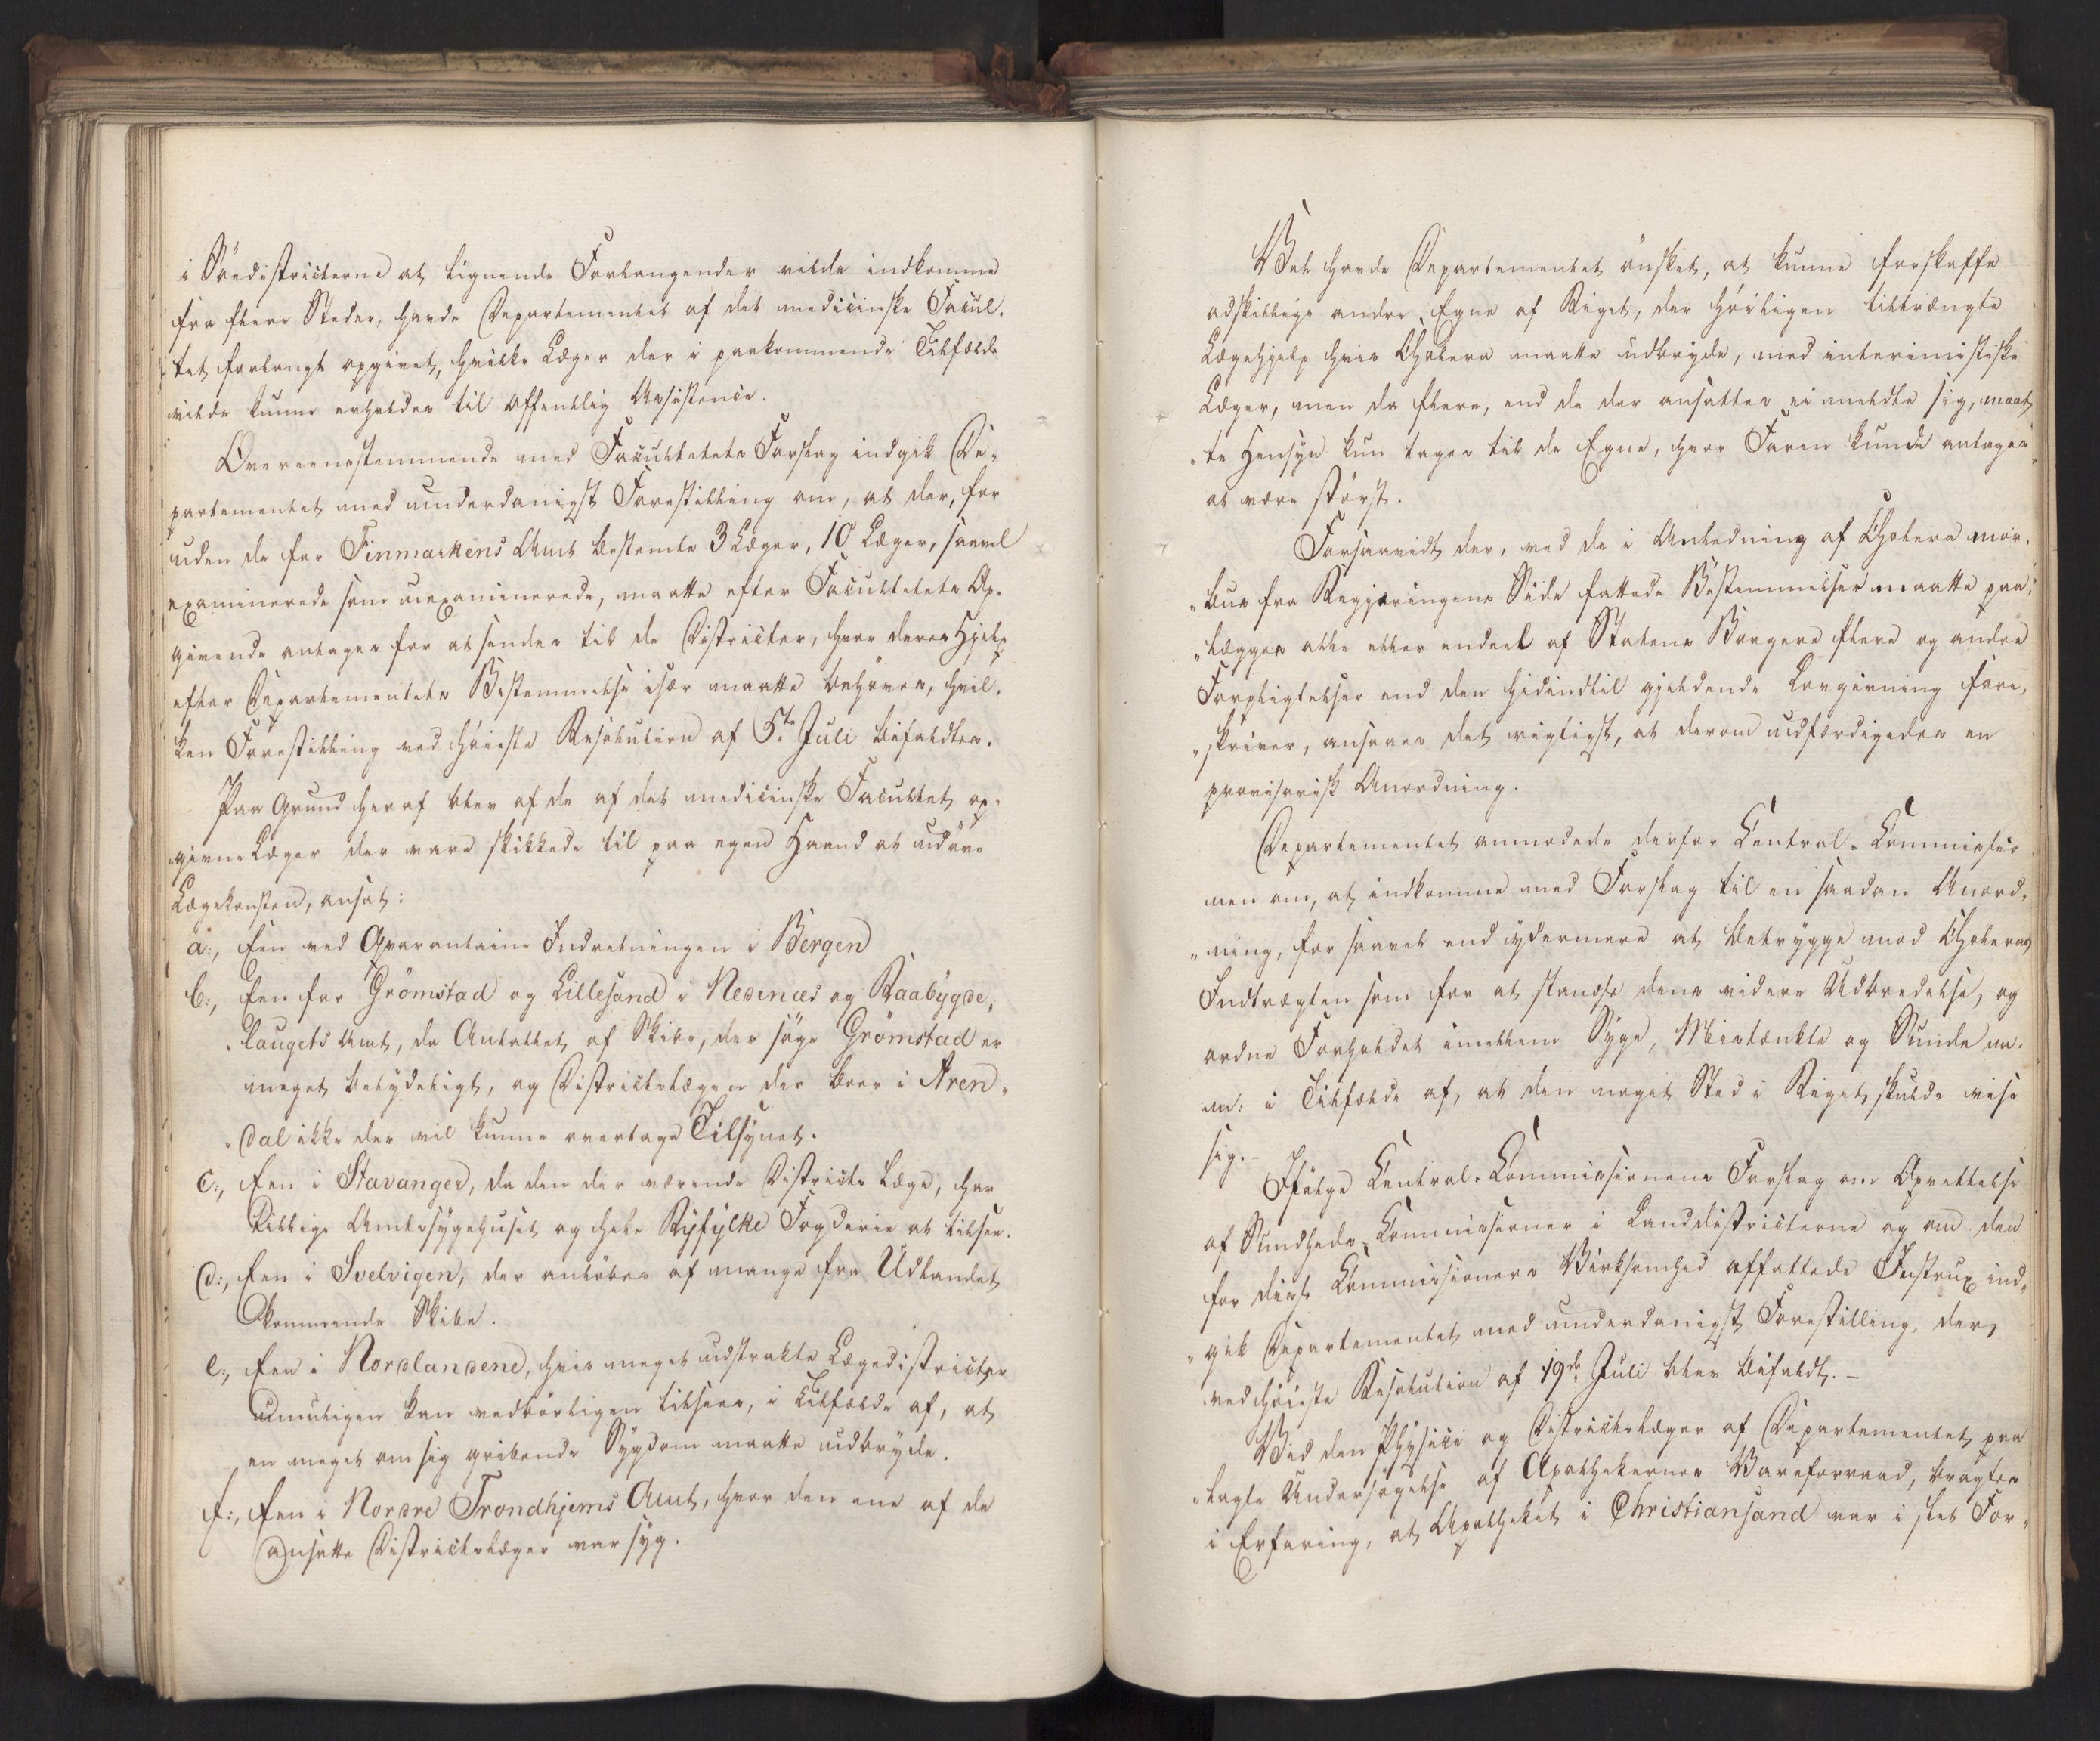 i Södistricterne at lignende Forlangender vilde indkomme
fra flere Steder, havde Departementet af det medicinske Facul-
tet forlangt opgivet, hvilke Læger der i paakommende Tilfælde
vilde kunne erholdes til offentlig Assistence.
Overeensstemmende med Facultetets Forslag indgik De-
partementet med underdanigst Forestilling om, at der, for
uden de for Finmarkens Amt bestemte 3 Læger, 10 Læger, saavel
examinerede som uexaminerede, maatte efter Facultetets Op-
givende antages for at sendes til de Districter, hvor deres Hjelp
efter Departementets Bestemmelse især maatte behöves, hvil-
ken Forestilling ved höieste Resolution af 5te Juli bifaldtes.
Paa Grund heraf blev af de af det medicinske Facultet op-
givne Læger der vare skikkede til paa egen Haand at udöve
Lægekonsten, ansat:
a:, Een ved Qvarantaine Indretningen i Bergen
b:, Een for Grömstad og Lillesand i Nedenæs og Raabygde-
"laugets Amt, da Antallet af Skibe, der söge Grömstad er
meget betydeligt, og Districtslægen der boer i Aren-
"dal ikke der vil kunne overtage Tilsynet.
c:, Een i Stavanger, da den der værende Districts Læge, har
tillige Amtssygehuset og hele Ryfylke Fogderie at tilsee.
d:, Een i Svelvigen, der anlöbes af mange fra Udlandet
kommende Skibe.
e:, Een i Nordlandene, hvis meget udstrakte Lægedistricter
umuligen kan vedbörligen tilsees, i Tilfælde af, at
en meget om sig gribende Sygdom maatte udbryde.
f:, Een i Nordre Trondhjems Amt, hvor den ene af de
ansatte Districtslæger var syg.
Vel havde Departementet önsket, at kunne forskaffe
adskillige andre Egne af Riget, der höiligen tiltrængte
Lægehjelp hvis Cholera maatte udbryde, med interimistiske
Læger, men da flere, end de der ansattes ei meldte sig, maat
"te Hensyn kun tages til de Egne, hvor Faren kunde antages
at være störst.
Forsaavidt der, ved de i Anledning af Cholera mor-
"bus fra Regjeringens Side fattede Bestemmelser maatte paa-
"lægges alle eller endeel af Statens Borgere flere og andre
Forpligtelser end den hidindtil gjeldende Lovgivning fore-
"skriver, ansaaes det vigtigst, at derom udfærdigedes en
provisorisk Anordning.
Departementet anmodede derfor Central-Commissio
nen om, at indkomme med Forslag til en saadan Anord-
"ning, for saavel end ydermere at betrygge mod Choleras
Indtrægten som for at standse dens videre Udbredelse, og
ordne Forholdet imellem Syge, Mistænkte og Sunde m.
m: i Tilfælde af, at den noget Sted i Riget skulde vise
sig.-
Ifölge Central-Commissionens Forslag om Oprettelse
af Sundheds-Commissioner i Landdistricterne og om den
for disse Commissioners Virksomhed affattede Instrux ind-
"gik Departementet med underdanigst Forestilling, der
ved höieste Resolution af 19de Juli blev bifaldt.-
Ved den Physici og Districtslæger af Departementet paa
"lagte Undersögelse af Apothekernes Vareforraad, bragtes
i Erfaring, at Apotheket i Christiansand var i slet For-